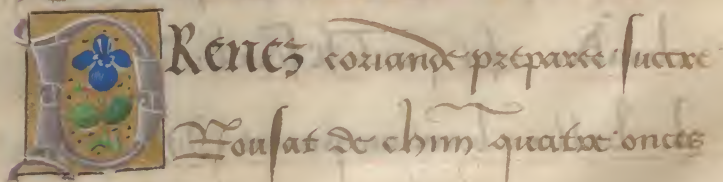 PRENES coriande preparee succre
Rousat de chūn quatre onces